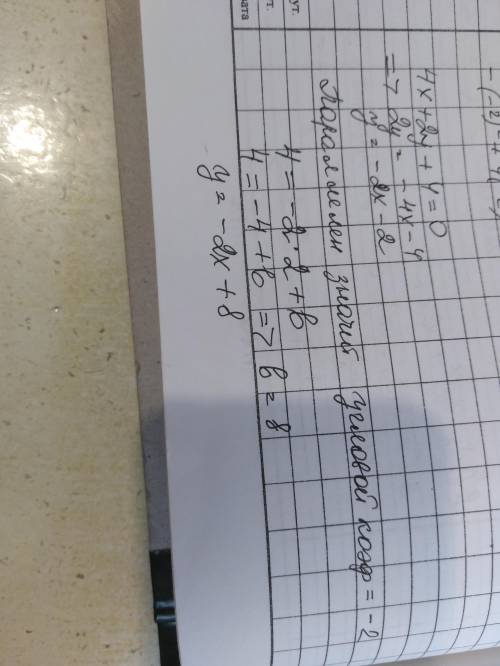 -(-2)+
4x+2y+4=0
=> 2y = -4x-4
y = -2x-2
Параллелен значит угловой коэф = -2
4 = -2·2+b
4 = -4+b => b = 8
y = -2x+8
ут.
т.
лата